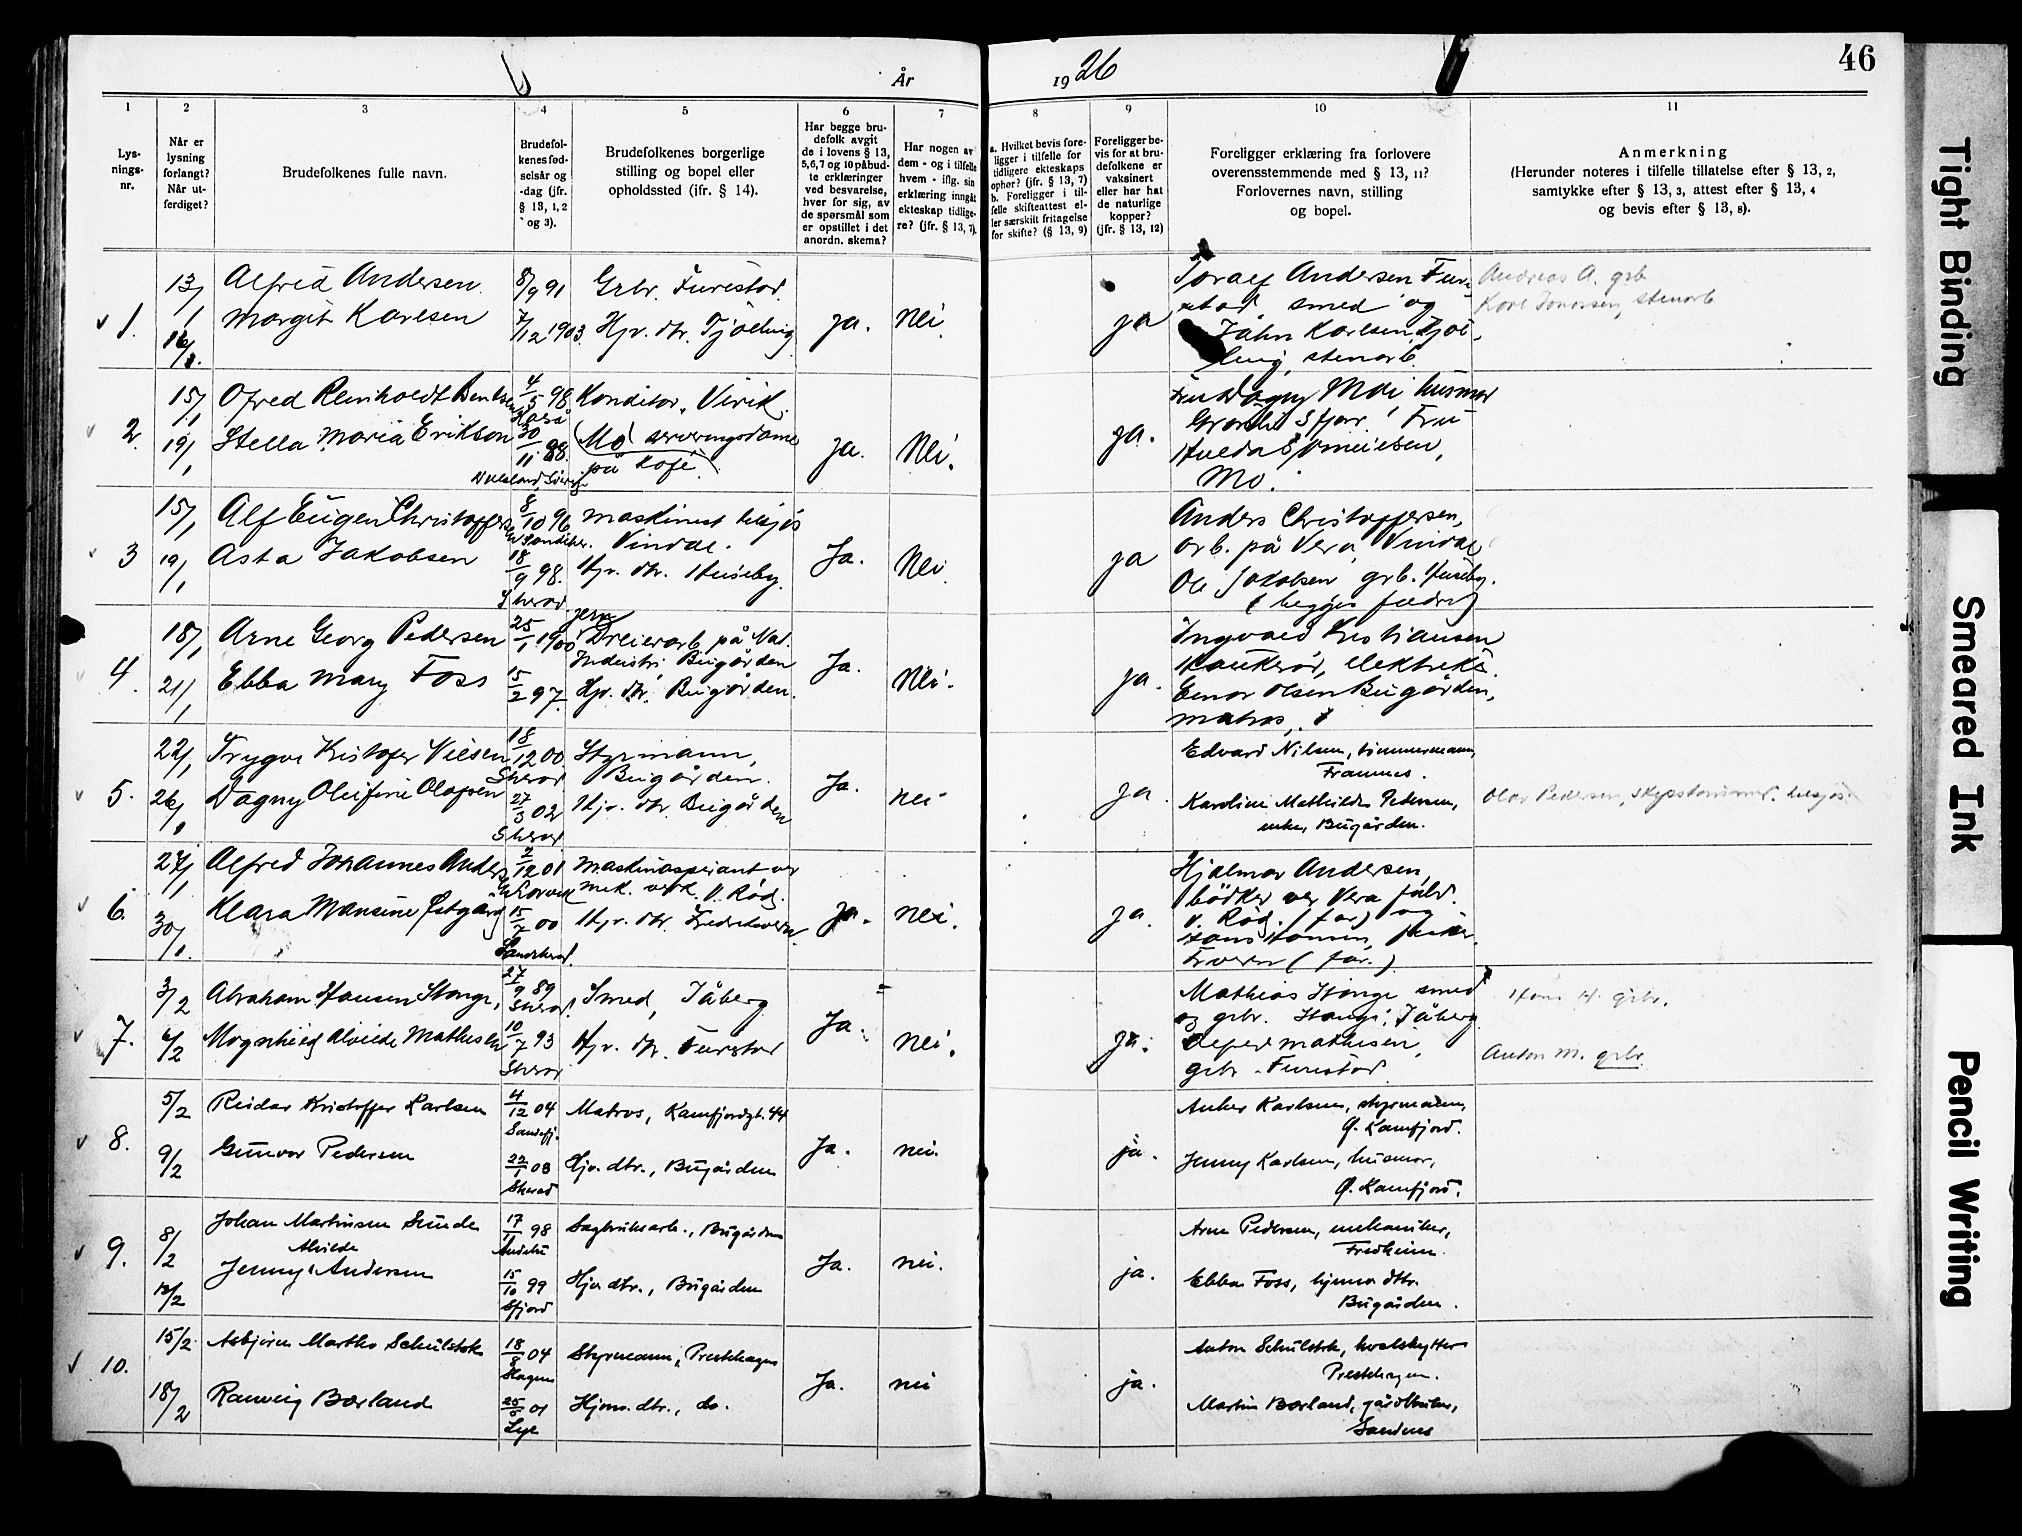 År 1926
46
1 2 3 4 5 6 7 8 9 10 11
Lys-
nings-
nr.
Når er
lysning
forlangt?
Når ut-
ferdiget?
Brudefolkenes fulle navn.
Brudefol-
kenes fød-
selsår og
-dag (jfr.
§ 13, 1, 2
og 3).
Brudefolkenes borgerlige
stilling og bopel eller
opholdssted (jfr. § 14).
Har begge bru-
defolk avgit
de i lovens § 13,
5,6,7 og 10 påbud-
te erklæringer
ved besvarelse,
hver for sig, av
de spørsmål som
er opstillet i det
anordn. skema?
Har nogen av
dem - og i tilfelle
hvem - iflg. sin
erklæring inngåt
ekteskap tidlige-
re? (jfr. § 13, 7).
a. Hvilket bevis fore-
ligger i tilfelle for
tidligere ekteskaps
ophør? (jfr. § 13, 7)
b. Foreligger i til-
felle skifteattest el-
ler særskilt fritagelse
for skifte? (§ 13, 9)
Foreligger be-
vis for at bru-
defolkene er
vaksinert
eller har hat
de naturlige
kopper?
(jfr. § 13, 12)
Foreligger erklæring fra forlovere
overensstemmende med § 13, 11?
Forlovernes navn, stilling
og bopel.
Anmerkning
(Herunder noteres i tilfelle tillatelse efter § 13, 2,
samtykke efter § 13, 3, attest efter § 13, 4
og bevis efter § 13, 8).
1.
13/1
16/1.
Alfred Andersen
Margit Karlsen
8/9 91
7/12 1903.
Grbr. Furustad.
Hjv. dtr. Tjølling
ja.
Nei.
ja
Toralf Andersen Furu-
stad, smed og
John Karlsen, Tjøl-
ling, stenarb.
Andreas A. grb.
Karl Jonassen, stenarb
2
15/1
19/1
Ofred Reinholdt Bentsen
Stella Maria Erikson
4/5 98
30/11 88.
Konditor, Virik.
(Mo) serveringsdame
på kafé.
ja.
Nei.
ja.
Fru Dagny Moi husmor
Granli Sfjord. Fru
Mo.
3
15/1
19/1
Alf Eugen Christoffersen
Asta Jakobsen
8/10 96
18/9 98.
Sherad
Maskinist tilsjøs
Vindal.
Hjv. dtr. Huseby.
Ja.
Nei
ja
Anders Christoffersen,
arb. på Vera, Vindal
Ole Jakobsen grb. Huseby.
(begges fædre)
4
18/1
21/1
Arne Georg Pedersen
Ebba Mary Foss
25/1 1900
15/2 97.
jern
Dreierarb. på Nat.
Industri Bugården
Hjv. dtr. Bugården.
Ja.
Nei.
ja.
Ingvald Kristiansen
Haukerød, elektriker.
Einar Olsen Bugården,
matros.
5.
22/1
26/1
Trygve Kristofer Nilsen
Dagny Olufine Olafsen
18/12 00
Sherad
27/3 02
Sherad
Styrmann,
Bugården.
Hjv. dtr. Bugården
Ja.
nei
Ja.
Edvard Nilsen, tømmermann,
Framnes.
Karoline Mathilde Pedersen,
enke, Bugården.
Olav Pedersen, skipstømmerm. tilsjøs.
6.
27/1
30/1.
Alfred Johannes Andersen
Klara Mansine Østgård
2/12 01
Larvik
15/7 00
Sandeherad.
Maskinaspirant ved
mek. verk. V. Rød.
Hjv. dtr. Fredriksvern.
Ja.
nei.
ja.
Hjalmar Andersen,
bødker ved Vera fabr.
V. Rød. (far) og
Hans Hansen, fisker.
Fr.vern (far.)
7.
3/2
6/2
Abraham Hansen Stange,
Magnhild Alvilde Mathisen
27/9 89
Sherad.
10/7 93
Sherad
Smed, Jåberg
Hjv. dtr. Furustad
Ja.
nei.
ja.
Mathias Stange smed
og grbr. Stange, Jåberg
Mathisen,
grbr. Furustad.
Hans H. grbr.
Anton M. grbr.
8.
5/2
9/2
Reidar Kristoffer Karlsen
Gunvor Pedersen
4/12 04
Sandefj.
22/1 03
Sherad
Matros, Kamfjordgt. 44
Hjv. dtr., Bugården
Ja.
nei.
ja.
Anker Karlsen, styrmann,
Ø. Kamfjord.
Jenny Karlsen, husmor,
Ø. Kamfjord.
9.
8/2
12/2
Johan Martinsen Sunde
Alvilde
Jenny Andersen
17/11 98
Andebu
15/10 99
Sfjord
Sagbruksarb., Bugården
Hjv. dtr., Bugården
Ja.
nei.
ja.
Arne Pedersen, mekaniker,
Fredheim.
Ebba Foss, hjemmev. dtr.
Bugården.
10.
15/2
18/2
Asbjørn Martho Schulstok
Ranveig Bærland
18/8 04
Slagen
25/5 01
Lye
Styrmann, Presthagen
Hjemv. dtr., do.
Ja.
nei
ja.
Anton Schulstok, hvalskytter
Presthagen.
Martin Bærland, gårdbruker,
Sandnes
Tight Binding
Smeared Ink
Pencil Writing